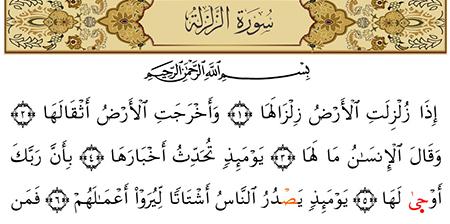 سُورَةُ الزَّلْزَلَةِ
بِسْمِ اللَّهِ الرَّحْمَٰنِ الرَّحِيمِ
إِذَا زُلْزِلَتِ ٱلْأَرْضُ زِلْزَالَهَا ﴿١﴾ وَأَخْرَجَتِ ٱلْأَرْضُ أَثْقَالَهَا ﴿٢﴾
وَقَالَ ٱلْإِنسَٰنُ مَا لَهَا ﴿٣﴾ يَوْمَئِذٍ تُحَدِّثُ أَخْبَارَهَا ﴿٤﴾ بِأَنَّ رَبَّكَ
أَوْحَىٰ لَهَا ﴿٥﴾ يَوْمَئِذٍ يَصْدُرُ ٱلنَّاسُ أَشْتَاتًا لِّيُرَوْا۟ أَعْمَٰلَهُمْ ﴿٦﴾ فَمَن